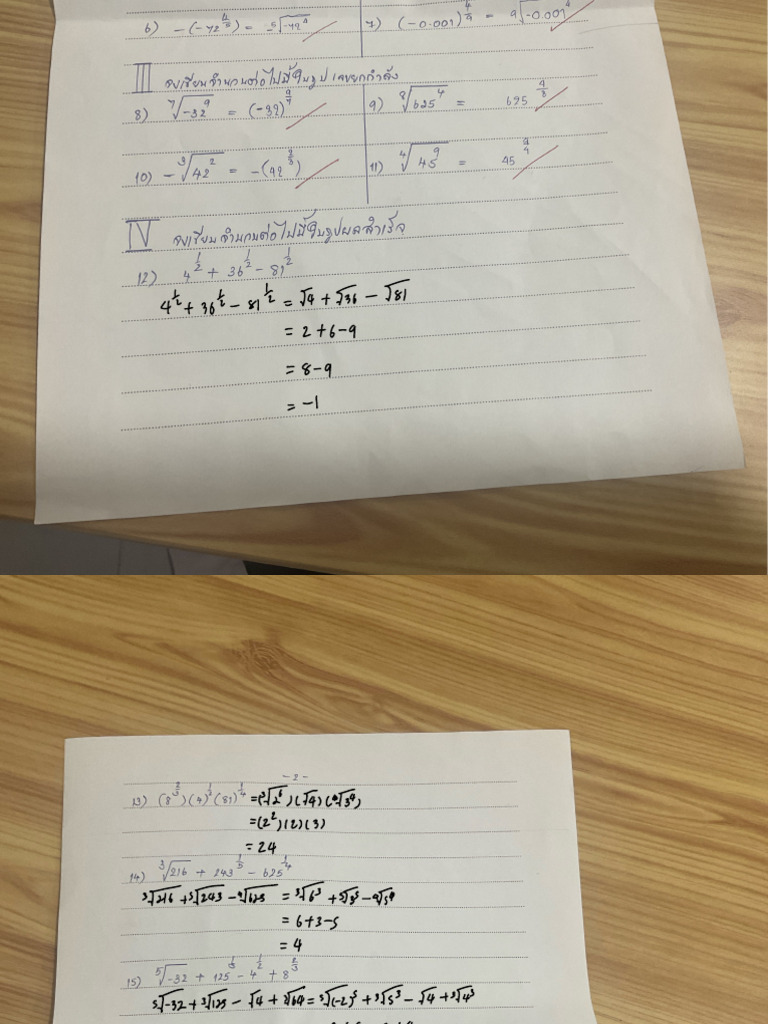 6) -(-72^(4/5)) = -⁵√-72⁴
7) (-0.001)^(4/9) = ⁹√-0.001⁴
III จงเขียนจำนวนต่อไปนี้ในรูปเลขยกกำลัง
8) ⁷√-32⁹ = (-32)^(9/7)
9) ⁸√625⁴ = 625^(4/8)
10) -³√42² = -(42^(2/3))
11) ⁴√45⁹ = 45^(9/4)
IV จงเขียนจำนวนต่อไปนี้ในรูปผลสำเร็จ
12) 4^(1/2) + 36^(1/2) - 81^(1/2)
4^(1/2) + 36^(1/2) - 81^(1/2) = √4 + √36 - √81
= 2+6-9
= 8-9
= -1
- 2 -
13) (8^(2/3))(4)^(1/2)(81)^(1/4) = (³√2⁶)(√4)(⁴√3⁴)
= (2²)(2)(3)
= 24
14) ³√216 + 243^(1/5) - 625^(1/4)
³√216 + ⁵√243 - ⁴√625 = ³√6³ + ⁵√3⁵ - ⁴√5⁴
= 6+3-5
= 4
15) ⁵√-32 + 125^(1/3) - 4^(1/2) + 8^(2/3)
⁵√-32 + ³√125 - √4 + ³√64 = ⁵√(-2)⁵ + ³√5³ - √4 + ³√4³